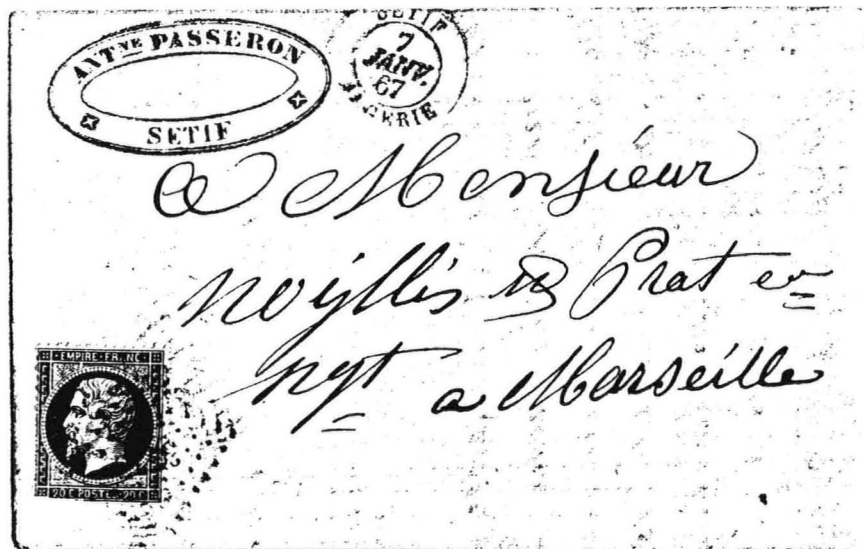 ANT.NE PASSERON
SETIF
SETIF
7
JANV.
67
ALGERIE
A Monsieur
noyllis & Prat en
ngt a Marseille
EMPIRE FRANC
20 C POSTE 20 C